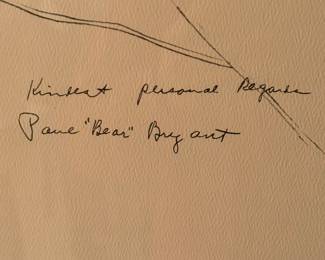 Kindest personal Regards
Paul "Bear" Bryant